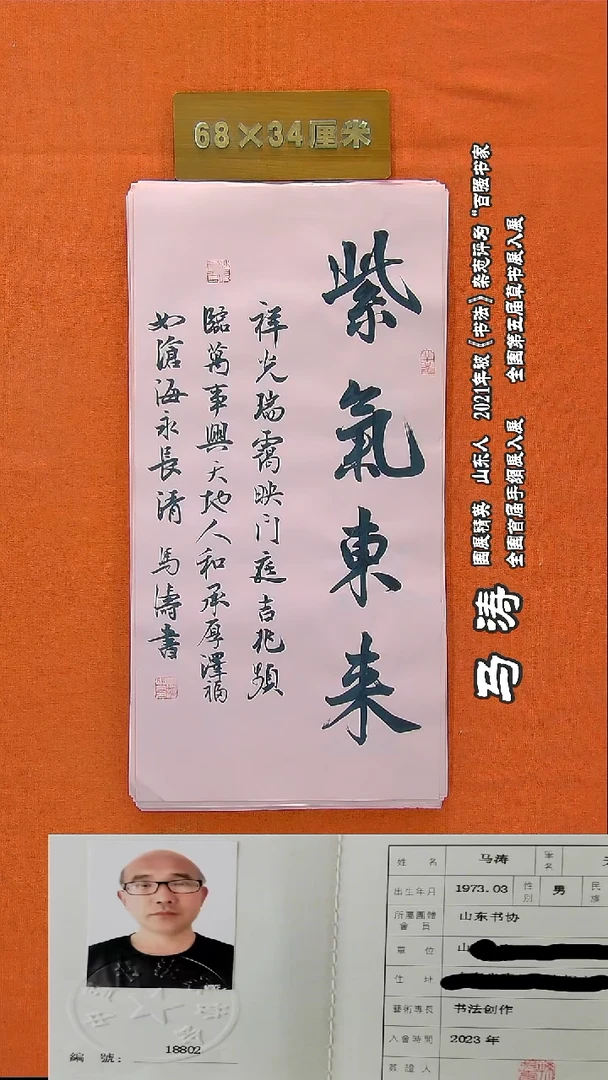 68×34厘米
紫氣東来
祥光瑞靄映门庭吉兆頻
臨萬事興天地人和承厚澤福
如滄海永長清 馬濤書
马涛
國展精英 山东人 2021年被《书法》杂志评为“百强书家
全國首届手卷展入展 全國第五届草书展入展
姓 名 马涛 筆名
出生年月 1973.03 性别 男 民族
所屬團體會員 山东书协
單 位 山
住 址
藝術專長 书法创作
入會時間 2023年
簽證人
編 號: 18802